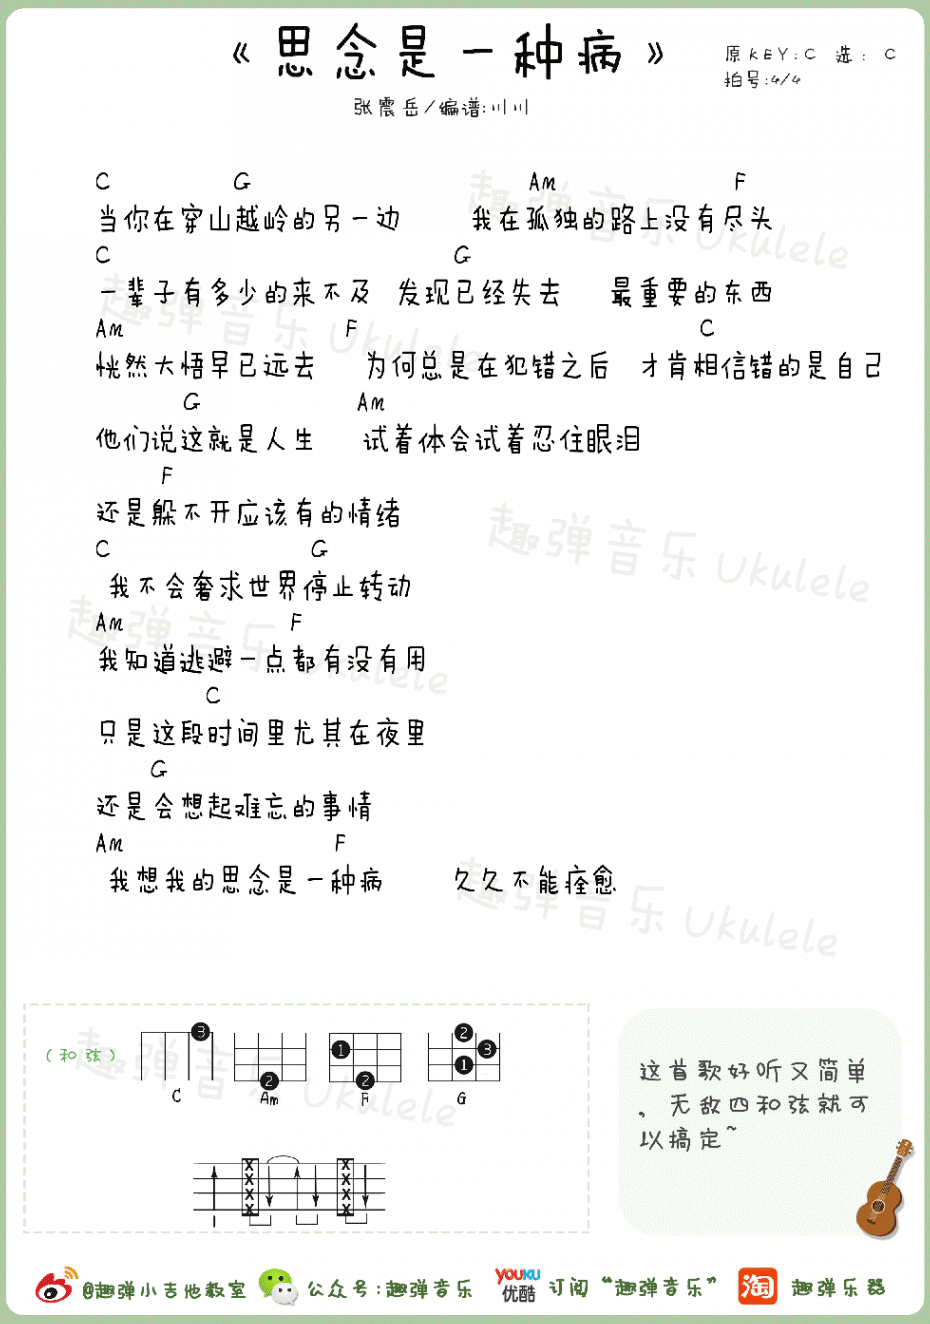 《思念是一种病》
原KEY:C 选: C
拍号:4/4
张震岳/编谱:川川
C G Am F
当你在穿山越岭的另一边 我在孤独的路上没有尽头
C G
一辈子有多少的来不及 发现已经失去 最重要的东西
Am F C
恍然大悟早已远去 为何总是在犯错之后 才肯相信错的是自己
G Am
他们说这就是人生 试着体会试着忍住眼泪
F
还是躲不开应该有的情绪
C G
我不会奢求世界停止转动
Am F
我知道逃避一点都有没有用
C
只是这段时间里尤其在夜里
G
还是会想起难忘的事情
Am F
我想我的思念是一种病 久久不能痊愈
趣弹音乐 Ukulele
趣弹音乐 Ukulele
趣弹音乐 Ukulele
趣弹音乐 Ukulele
趣弹音乐 Ukulele
趣弹音乐 Ukulele
(和弦)
3 2 1 2 2 3 1
C Am F G
X X
X X
X X
X X
这首歌好听又简单
,无敌四和弦就可
以搞定~
@趣弹小吉他教室 公众号:趣弹音乐 YOUKU 优酷 订阅“趣弹音乐” 淘 趣弹乐器